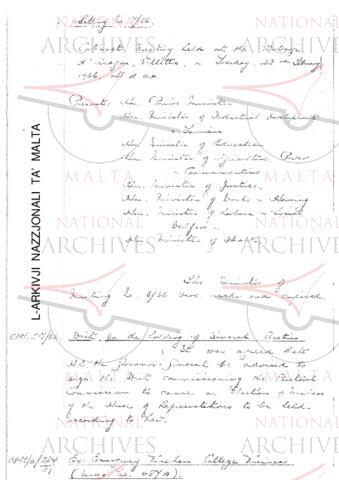 Sitting No. 7/66.
Cabinet Meeting held at the Auberge
d'Aragon, Valletta, on Tuesday, 22nd February,
1966, at 11 a.m.
Present: Hon. Prime Minister
Hon. Minister of Industrial Development
& Tourism
Hon. Minister of Education
Hon. Minister of Agriculture, Power
& Communications
Hon. Minister of Justice,
Hon. Minister of Works & Housing
Hon. Minister of Labour & Social
Welfare
Hon. Minister of Health.
The Minutes of
Meeting No. 6/66 were read and confirmed.
OPM. /66. Writ for the Holding of General Election
It was agreed that
H.E. the Governor-General be advised to
sign the Writ commissioning the Electoral
Commission to cause an Election of Members
of the House of Representatives to be held
according to law.
OPM/ /264/51 Ex-Emergency Teachers College Trainees
(Memo. No. 484A).
L-ARKIVJI NAZZJONALI TA' MALTA
NATIONAL
ARCHIVES
MALTA